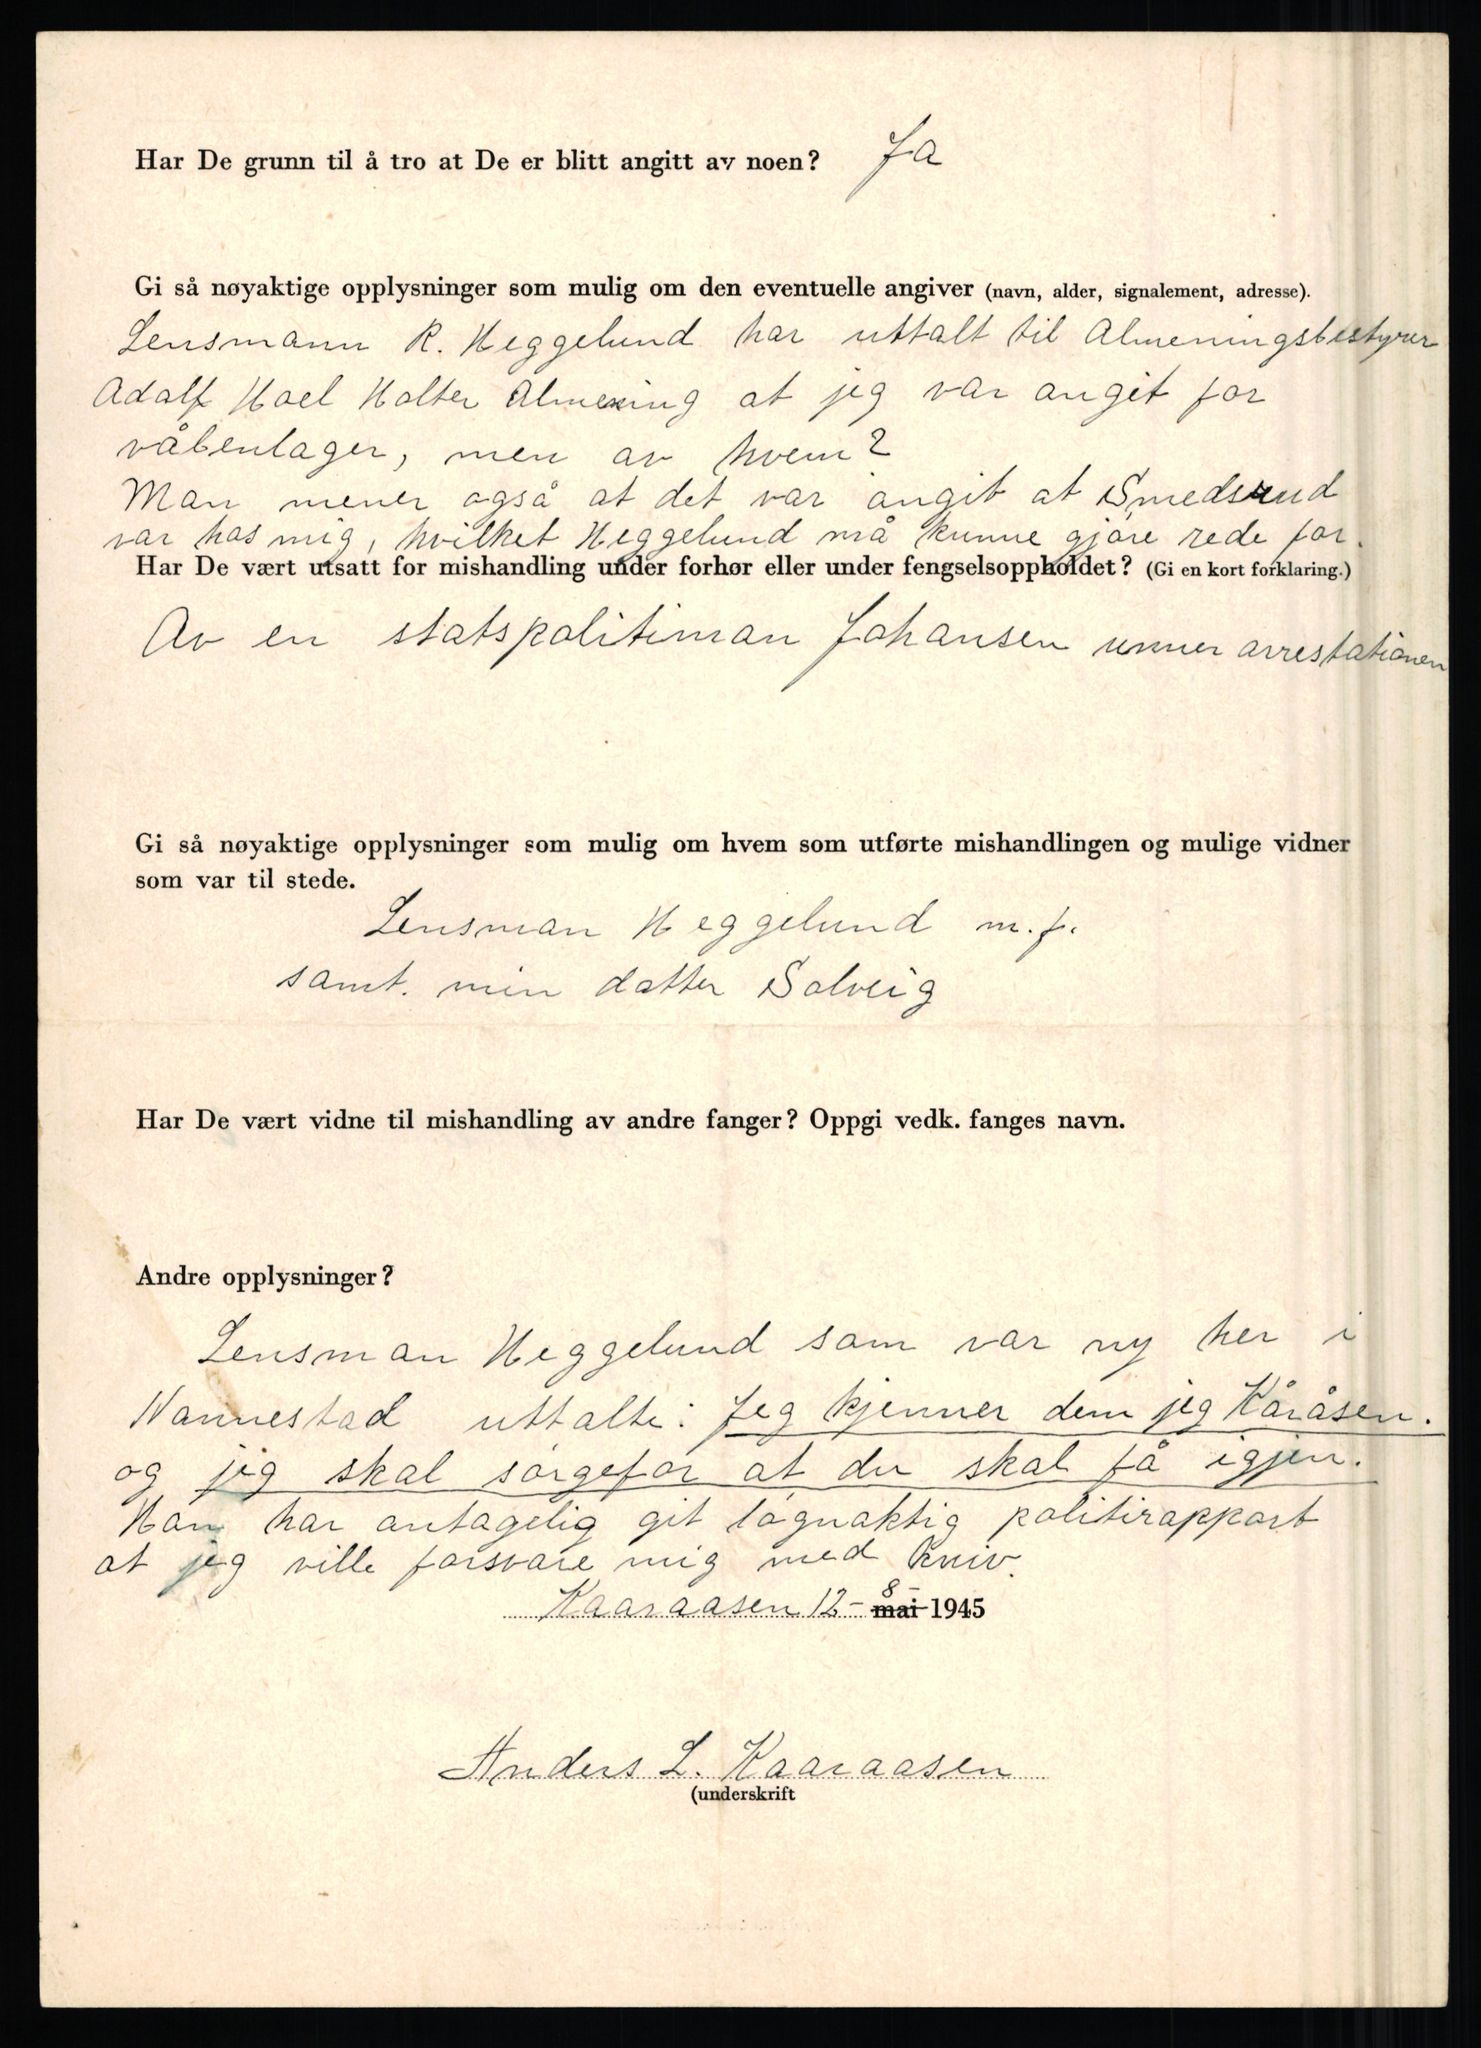 Har De grunn til å tro at De er blitt angitt av noen? Ja
Gi så nøyaktige opplysninger som mulig om den eventuelle angiver (navn, alder, signalement, adresse).
Lensmann R. Heggelund har uttalt til Almeningsbestyrer
Adolf Hoel Holter Almening at jeg var angit for
våbenlager, men av hvem?
Man mener også at det var angit at Smedsrud
var hos mig, hvilket Heggelund må kunne gjøre rede for.
Har De vært utsatt for mishandling under forhør eller under fengselsoppholdet? (Gi en kort forklaring.)
Av en statspolitiman Johansen unner arrestationen
Gi så nøyaktige opplysninger som mulig om hvem som utførte mishandlingen og mulige vidner
som var til stede.
Lensman Heggelund m.fl.
samt. min datter Solveig
Har De vært vidne til mishandling av andre fanger? Oppgi vedk. fanges navn.
Andre opplysninger?
Lensman Heggelund som var ny her i
Nannestad uttalte: Jeg kjenner dem jeg Kåråsen.
og jeg skal sørgefor at du skal få igjen.
Han har antagelig git løgnaktig politirapport
at jeg ville forsvare mig med kniv.
Kaaraasen 12- 8- mai 1945
Anders L. Kaaraasen
(underskrift